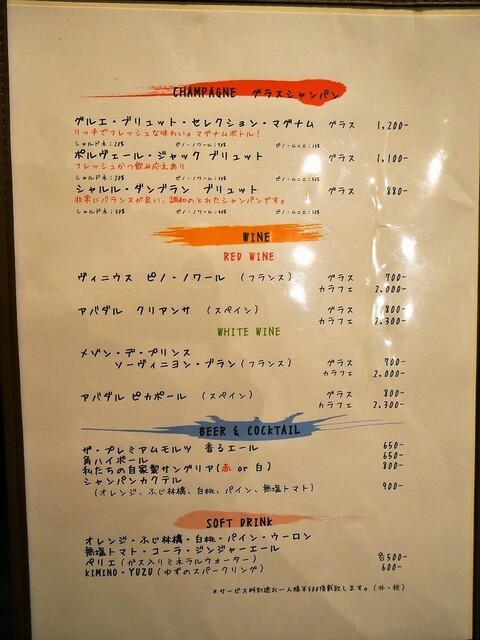 CHAMPAGNE グラスシャンパン
グルエ・ブリュット・セレクション・マグナム グラス 1,200-
リッチでフレッシュな味わい。マグナムボトル!
シャルドネ: ピノ・ノワール: ピノ・ムニエ:
ポルヴェール・ジャック ブリュット グラス 1,100-
フレッシュかつ飲み応えあり
シャルドネ: ピノ・ノワール: ピノ・ムニエ:
シャルル・ダンブラン ブリュット グラス 880-
非常にバランスが良い、調和のとれたシャンパンです。
シャルドネ: ピノ・ノワール: ピノ・ムニエ:
WINE
RED WINE
ヴィニウス ピノ・ノワール (フランス) グラス 700-
カラフェ 2.000-
アバダル クリアンサ (スペイン) グラス 800-
カラフェ 2.300-
WHITE WINE
メゾン・デ・プリンス
ソーヴィニヨン・ブラン(フランス) グラス 700-
カラフェ 2.000-
アバダル ピカポール (スペイン) グラス 800-
カラフェ 2.300-
BEER & COCKTAIL
ザ・プレミアムモルツ 香るエール 650-
角ハイボール 650-
私たちの自家製サングリア(赤 or 白) 800-
シャンパンカクテル
(オレンジ、ふじ林檎、白桃、パイン、無塩トマト) 900-
SOFT DRINK
オレンジ・ふじ林檎・白桃・パイン・ウーロン
無塩トマト・コーラ・ジンジャーエール 各500-
ペリエ(ガス入りミネラルウォーター)
KIMINO・YUZU(ゆずのスパークリング) 600-
※サービス料別途お一人様¥500頂戴致します。(外・税)